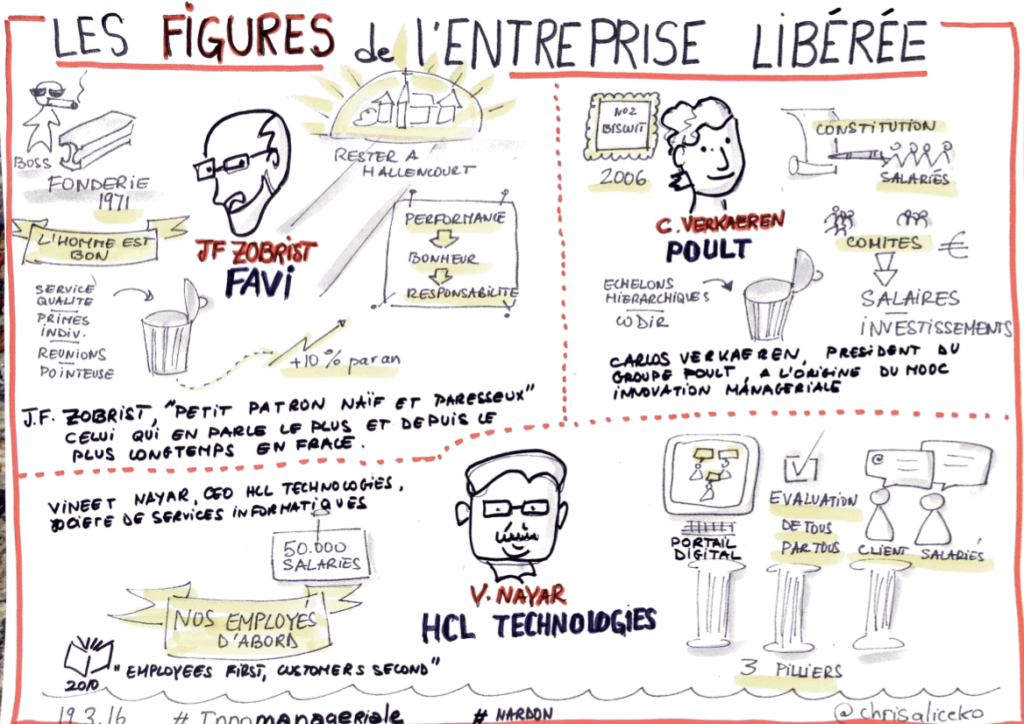 LES FIGURES de L'ENTREPRISE LIBÉRÉE
BOSS
FONDERIE
1971
L'HOMME EST
BON
JF ZOBRIST
FAVI
RESTER A
HALLENCOURT
PERFORMANCE
BONHEUR
RESPONSABILITE
SERVICE
QUALITE
PRIMES
INDIV.
REUNIONS
POINTEUSE
+10% par an
J.F. ZOBRIST, "PETIT PATRON NAÏF ET PARESSEUX"
CELUI QUI EN PARLE LE PLUS ET DEPUIS LE
PLUS LONGTEMPS EN FRACE.
NO2
BISCUIT
2006
C. VERKAEREN
POULT
CONSTITUTION
SALARIÉS
COMITES €
SALAIRES
INVESTISSEMENTS
ECHELONS
HIERARCHIQUES
CODIR
CARLOS VERKAEREN, PRESIDENT DU
GROUPE POULT, A L'ORIGINE DU MOOC
INNOVATION MANAGERIALE
VINEET NAYAR, CEO HCL TECHNOLOGIES,
SOCIETE DE SERVICES INFORMATIQUES
50.000
SALARIES
NOS EMPLOYÉS
D'ABORD
2010
"EMPLOYEES FIRST, CUSTOMERS SECOND"
V. NAYAR
HCL TECHNOLOGIES
PORTAIL
DIGITAL
EVALUATION
DE TOUS
PAR TOUS
@
CLIENT SALARIÉS
3 PILLIERS
19.3.16 # Innomanageriale # NARDON @chrisaliceko